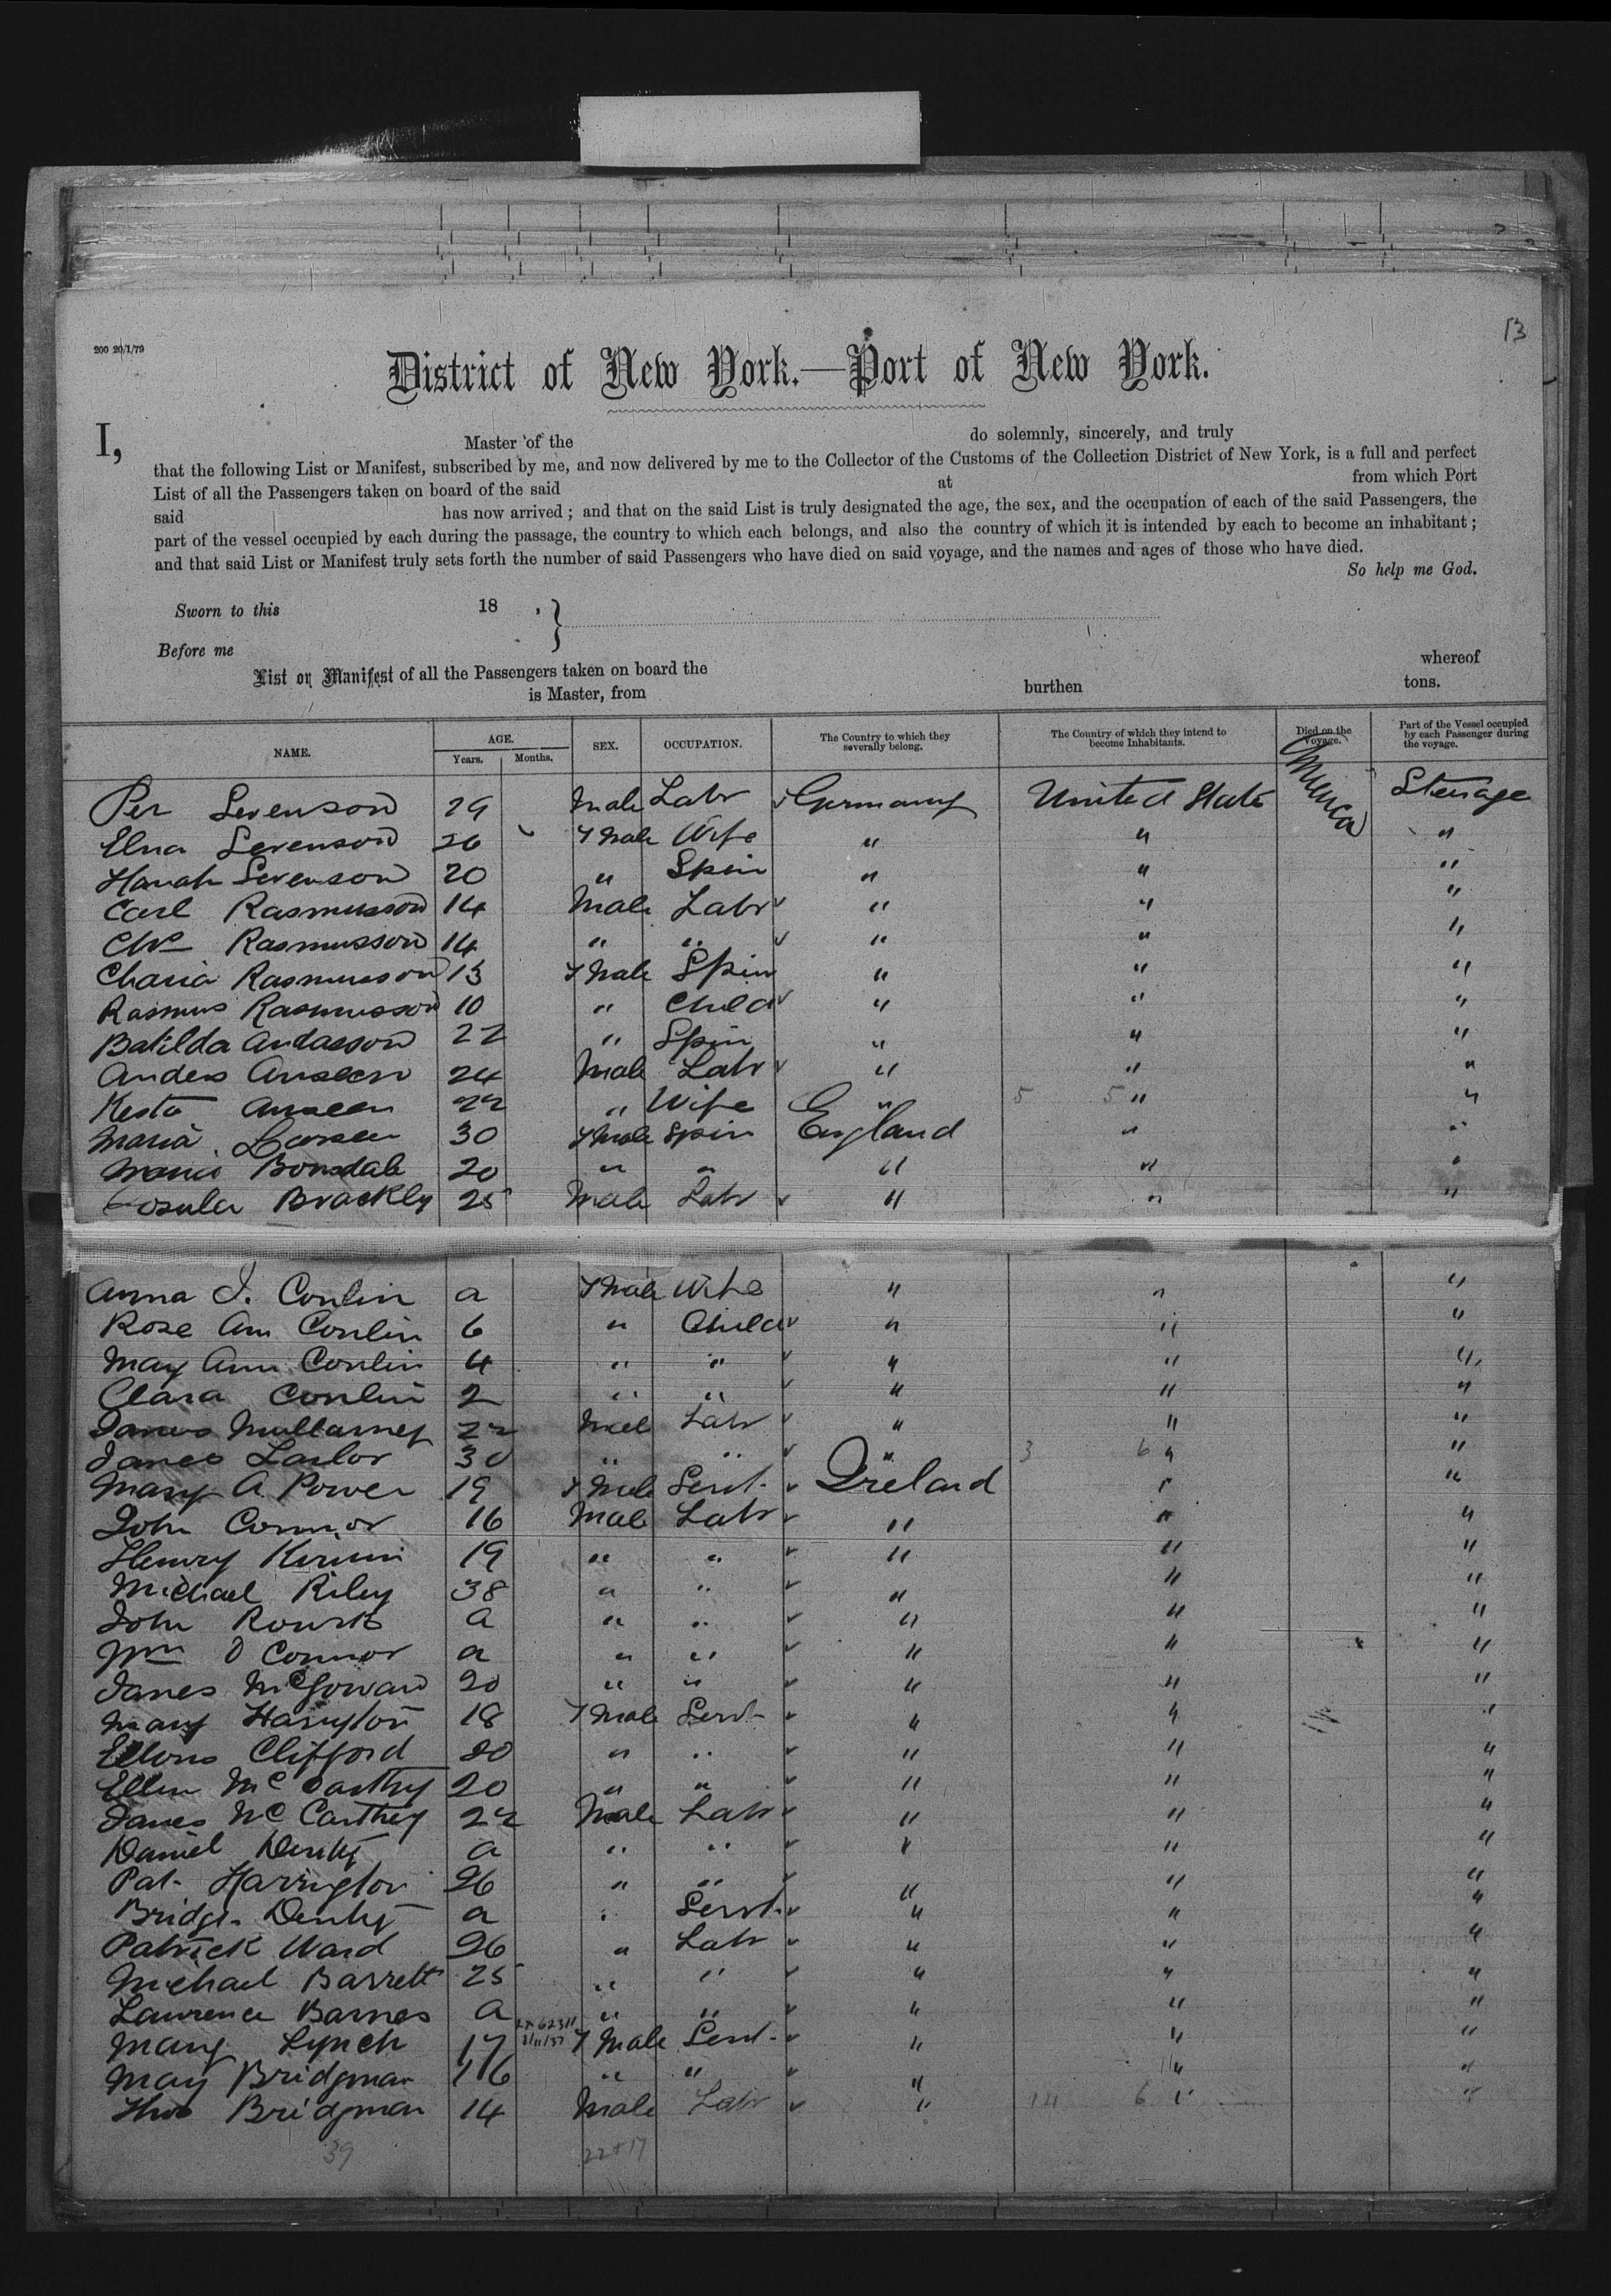 13
200 20/1/79
District of New York.—Port of New York.
I, Master of the do solemnly, sincerely, and truly
that the following List or Manifest, subscribed by me, and now delivered by me to the Collector of the Customs of the Collection District of New York, is a full and perfect
List of all the Passengers taken on board of the said at from which Port
said has now arrived ; and that on the said List is truly designated the age, the sex, and the occupation of each of the said Passengers, the
part of the vessel occupied by each during the passage, the country to which each belongs, and also the country of which it is intended by each to become an inhabitant ;
and that said List or Manifest truly sets forth the number of said Passengers who have died on said voyage, and the names and ages of those who have died.
So help me God.
Sworn to this 18 , }
Before me
List or Manifest of all the Passengers taken on board the whereof
is Master, from burthen tons.
NAME. AGE. Years. Months. SEX. OCCUPATION. The Country to which they severally belong. The Country of which they intend to become Inhabitants. Died on the Voyage. Part of the Vessel occupied by each Passenger during the voyage.
Per Levenson 29 Male Labr Germany United State Steerage
Elna Levenson 26 Fmale Wife " " "
Hanah Levenson 20 " Spin " " "
Carl Rasmusson 14 Male Labr " " "
Rasmusson 14 " " " " "
Rasmusson 13 Fmale Spin " " "
Rasmus Rasmusson 10 " Child " " "
Batilda Andasson 22 " Spin " " "
Anders 24 Male Labr " " "
22 " Wife " 5 5 " "
Maria Larsen 30 Fmale Spin England " "
Maria 20 " " " " "
Brackly 25 Male Labr " " "
Anna J. Conlin a Fmale Wife " " "
Rose Ann Conlin 6 " Child " " "
May Ann Conlin 4 " " " " "
Clara Conlin 2 " " " " "
James Mullarney 22 Male Labr " " "
James Lawlor 30 " " " 3 6 " "
Mary A Power 19 Fmale Servt Ireland " "
John Connor 16 Male Labr " " "
Henry Kirwin 19 " " " " "
Michael Riley 38 " " " " "
John a " " " " "
Wm O Connor a " " " " "
James McGowan 20 " " " " "
Mary 18 Fmale Servt " " "
Clifford 20 " " " " "
Ellen McCarthy 20 " " " " "
James McCarthy 22 Male Labr " " "
Daniel a " " " " "
Pat. Harrington 26 " " " " "
Bridgt a " Servt " " "
Patrick Ward 26 " Labr " " "
Michael Barrett 25 " " " " "
Lawrence Barnes a " " " " "
Mary Lynch 17 Fmale Servt " " "
May Bridgman 16 " " " " "
Thos Bridgman 14 Male Labr " 14 6 " "
39 22+17